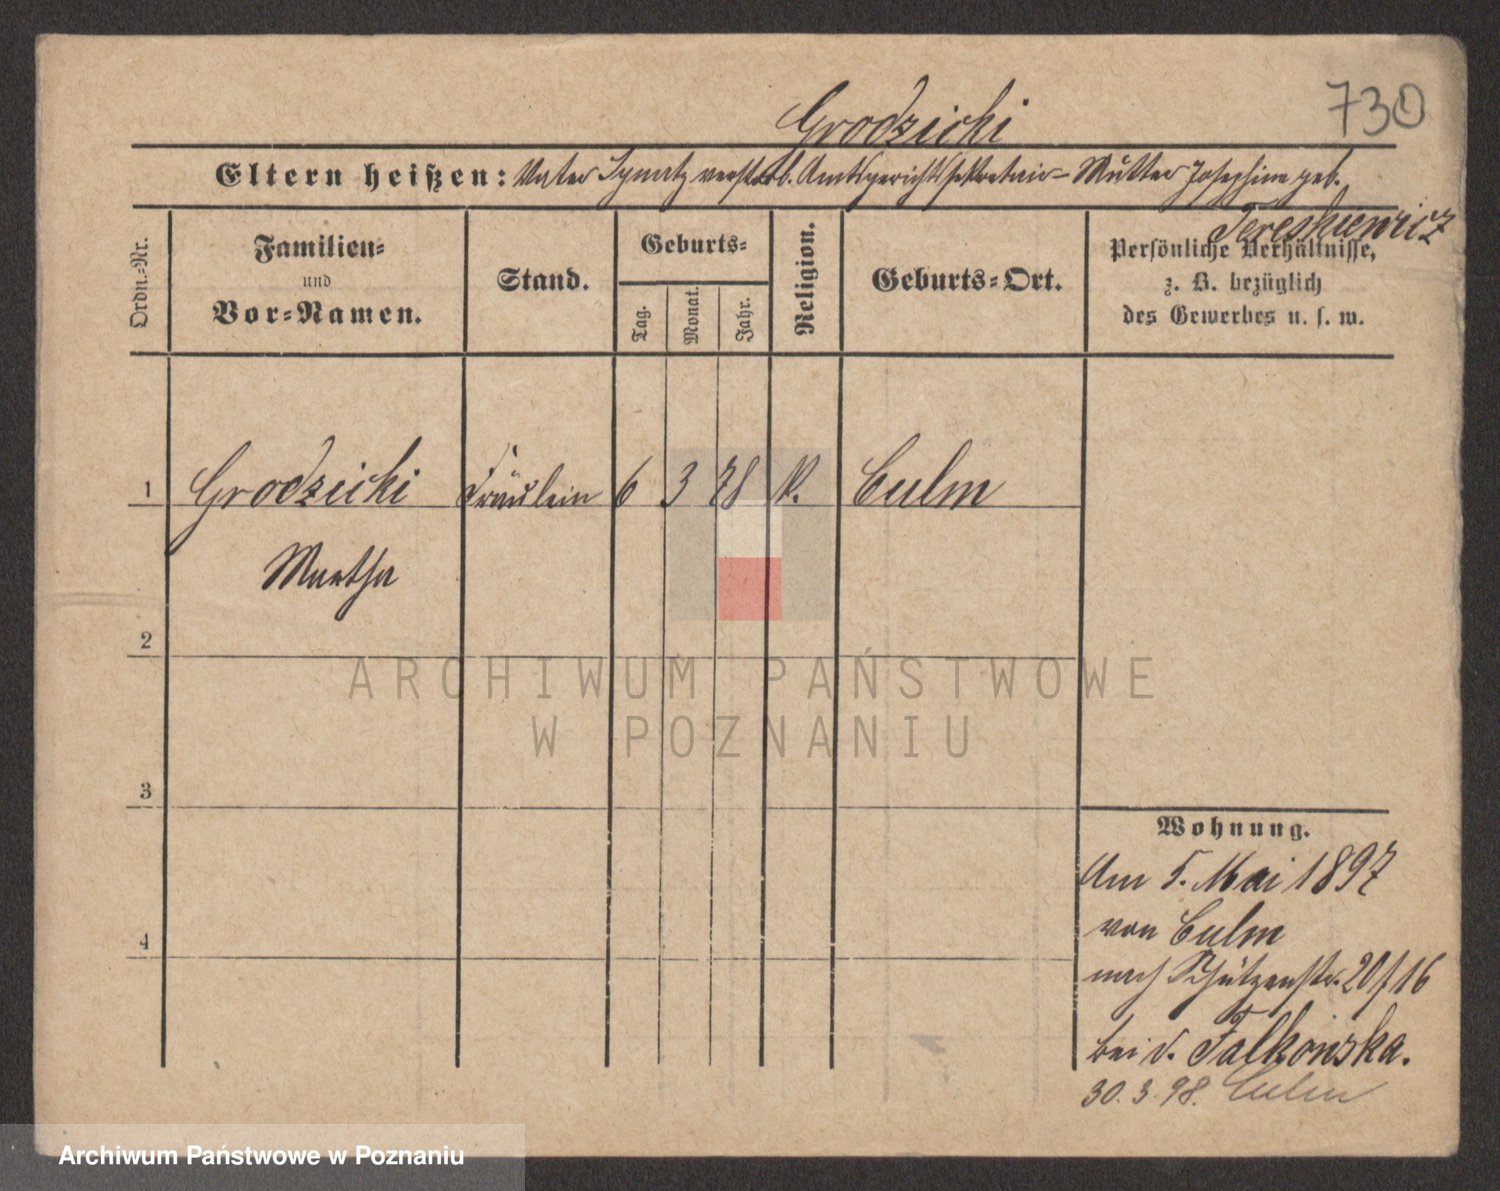 730
Grodzicki
Eltern heißen: Vater Ignatz verstorb. Amtsgerichtssekretair - Mutter Josephine geb.
Tereskiewicz
Ordn.-Nr.
Familien-
und
Vor-Namen.
Stand.
Geburts-
Tag.
Monat.
Jahr.
Religion.
Geburts-Ort.
Persönliche Verhältnisse,
z. B. bezüglich
des Gewerbes u. s. w.
1 Grodzicki Fräulein 6 3 78 k. Culm
Martha
2
3
4
Wohnung.
Am 5. Mai 1897
von Culm
nach Schützenstr. 20/16
bei v. Falkowska.
30. 3. 98. Culm
ARCHIWUM PAŃSTWOWE
W POZNANIU
Archiwum Państwowe w Poznaniu